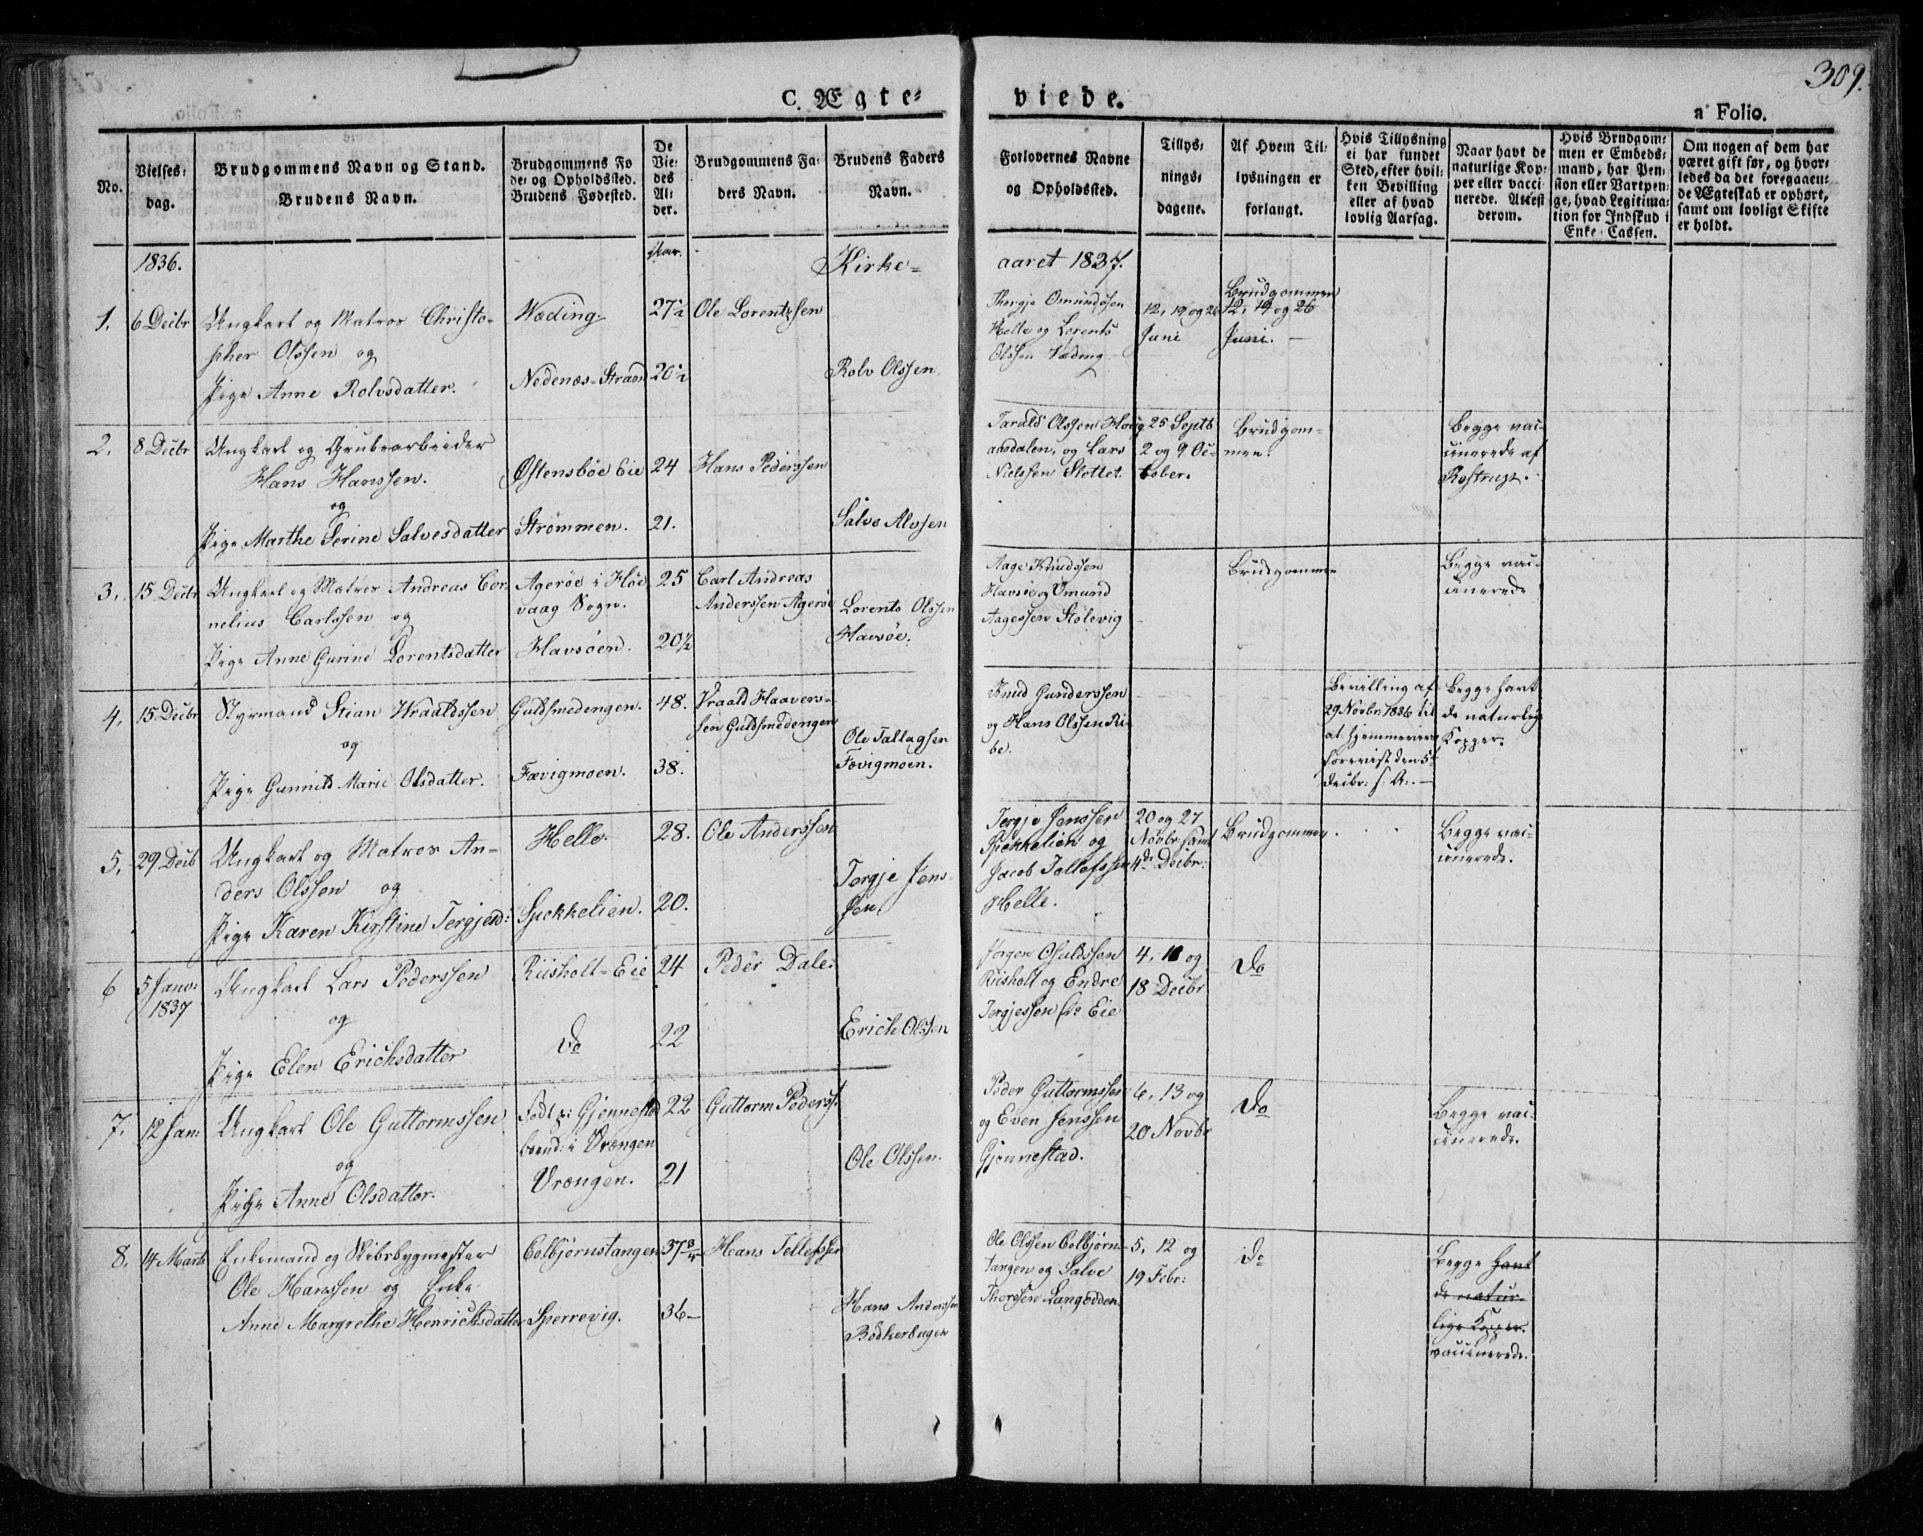 309.
C. Ægte=
viede.
a Folio.
No.
Vielses=
dag.
Brudgommens Navn og Stand.
Brudens Navn.
Brudgommens Fø
de= og Opholdssted.
Brudens Fødested.
De
Vie=
des
Al=
der.
Brudgommens Fa=
ders Navn.
Brudens Faders
Navn.
Forlovernes Navne
og Opholdssted.
Tillys=
nings=
dagene.
Af Hvem Til=
lysningen er
forlangt.
Hvis Tillysning
ei har fundet
Sted, efter hvil=
ken Bevilling
eller af hvad
lovlig Aarsag.
Naar havt de
naturlige Kop=
per eller vacci=
nerede. Attest
derom.
Hvis Brudgom=
men er Embeds=
mand, har Pen=
sion eller Vartpen=
ge, hvad Legitima=
tion for Indskud i
Enke=Cassen.
Om nogen af dem har
været gift før, og hvor=
ledes da det foregaaen=
de Ægteskab er ophørt,
samt om lovligt Skifte
er holdt.
1836.
Aar.
Kirke=
aaret 1837.
1.
6 Decbr
Ungkarl og Matros Christo=
pher Olssen og
Pige Anne Rolvsdatter.
Væding
Nedenæs=Strand
27½
20½
Ole Lorentzsen
Rolv Olssen
Thergje Omundssen
Helle og Lorents
Olssen Væding
12, 19 og 26
Juni
Brudgommen
12, 19 og 26
Juni.
2.
8 Decbr
Ungkarl og Grubearbeider
Hans Hanssen.
og
Pige Marthe Serine Salvesdatter
Østensbøe Eie
Strømmen.
24
21.
Hans Pederssen
Salve Alvsen
Tarald Olssen Houg
aasdalen, og Lars
Nielssen Slottet
25 Septb
2 og 9 Oc=
tober.
Brudgom=
men.
Begge vac=
cinerede af
Rostrup.
3.
15 Decbr
Ungkarl og Matros Andreas Cor
nelius Carlssen og
Pige Anne Gurine Lorentsdatter
Agerøe i Høe
vaag Sogn.
Havsøen.
25
20½
Carl Andreas
Anderssen Agerøe
Lorents Olssen
Havsøe.
Aage Knudssen
Havsøe og Omund
Aagessen Stølevig
Brudgommen
Begge vac=
cinerede
4.
15 Decbr
Styrmand Stian Wraaldssen
og
Pige Gunnild Marie Olsdatter.
Guldsmedengen.
Fævigmoen.
48.
38.
Vraald Haavers=
sen Guldsmedengen
Ole Tallagsen
Fævigmoen.
Knud Gunderssen
og Hans Olssen Ri
be.
Bevilling af
29 Novbr 1836 til
at hjemmevies
forevist den 5te
Decbr: s. A:.
Begge havt
de naturlige
Kopper.
5.
29 Decb
Ungkarl og Matros An=
ders Olssen og
Pige Karen Kirstine Tergjesd:
Helle.
Spekkelien.
28.
20.
Ole Anderssen
Tergje Jens
sen
Tergje Jenssen
Spekkelien og
Jacob Tellefssen
Helle.
20 og 27
Novbr samt
4de Decbr:
Brudgommen.
Begge vac=
cinerede.
6
5 Janu:
1837
Ungkarl Lars Pederssen
og
Pige Elen Erichsdatter
Riisholt=Eie
Do
24
22
Peder Dale.
Erich Olssen
Jørgen Osuldssen
Riisholt og Endre
Tergjessen Do Eie
4, 11 og
18 Decbr
Do
7.
12 Jan:
Ungkarl Ole Guttormssen
og
Pige Anne Olsdatter.
Født på Gjennestad
boend: i Vrengen
Vrengen.
22
21
Guttorm Pederss.
Ole Olssen.
Peder Guttormssen
og Even Jenssen
Gjennestad.
6, 13 og
20 Novbr
Do
Begge vac=
cinerede.
8.
14 Marts
Enkemand og Skibsbygmester
Ole Hanssen og Enke
Anne Margrethe Henrichsdatter
Colbjørnstangen
Sperrevig.
37¾
36
Hans Tellefssen
Hans Anderssen
Bødkerbugen
Ole Olssen Colbjørns=
tangen og Salve
Thorssen Langodden
5, 12 og
19 Febr:
Do
Begge havt
de natur=
lige Kopper.
vaccinerede.